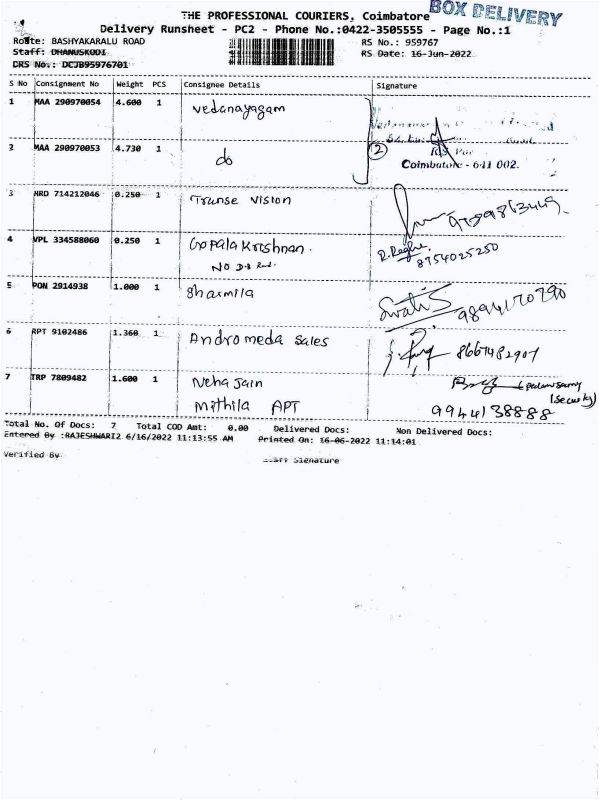 BOX DELIVERY
THE PROFESSIONAL COURIERS, Coimbatore
Delivery Runsheet - PC2 - Phone No.:0422-3505555 - Page No.:1
Route: BASHYAKARALU ROAD RS No.: 959767
Staff: DHANUSKODI RS Date: 16-Jun-2022
DRS No.: DCJB95976701
S No Consignment No Weight PCS Consignee Details Signature
1 MAA 290970054 4.600 1 Vedanayagam
2 MAA 290970053 4.730 1 do (2)
Coimbatore - 641 002.
3 HRD 714212046 0.250 1 Transe Vision
4 VPL 334588060 0.250 1 Gopala Krishnan. R. Raghu 8754025250
NO D-B
5 PON 2914938 1.000 1 Sharmila Swathi S 9894170790
6 RPT 9102486 1.360 1 Andromeda Sales 8667482907
7 TRP 7809482 1.600 1 Neha Jain
(Security)
Mithila APT 9944138888
Total No. Of Docs: 7 Total COD Amt: 0.00 Delivered Docs: Non Delivered Docs:
Entered By :RAJESHWARI2 6/16/2022 11:13:55 AM Printed On: 16-06-2022 11:14:01
Verified By Staff Signature